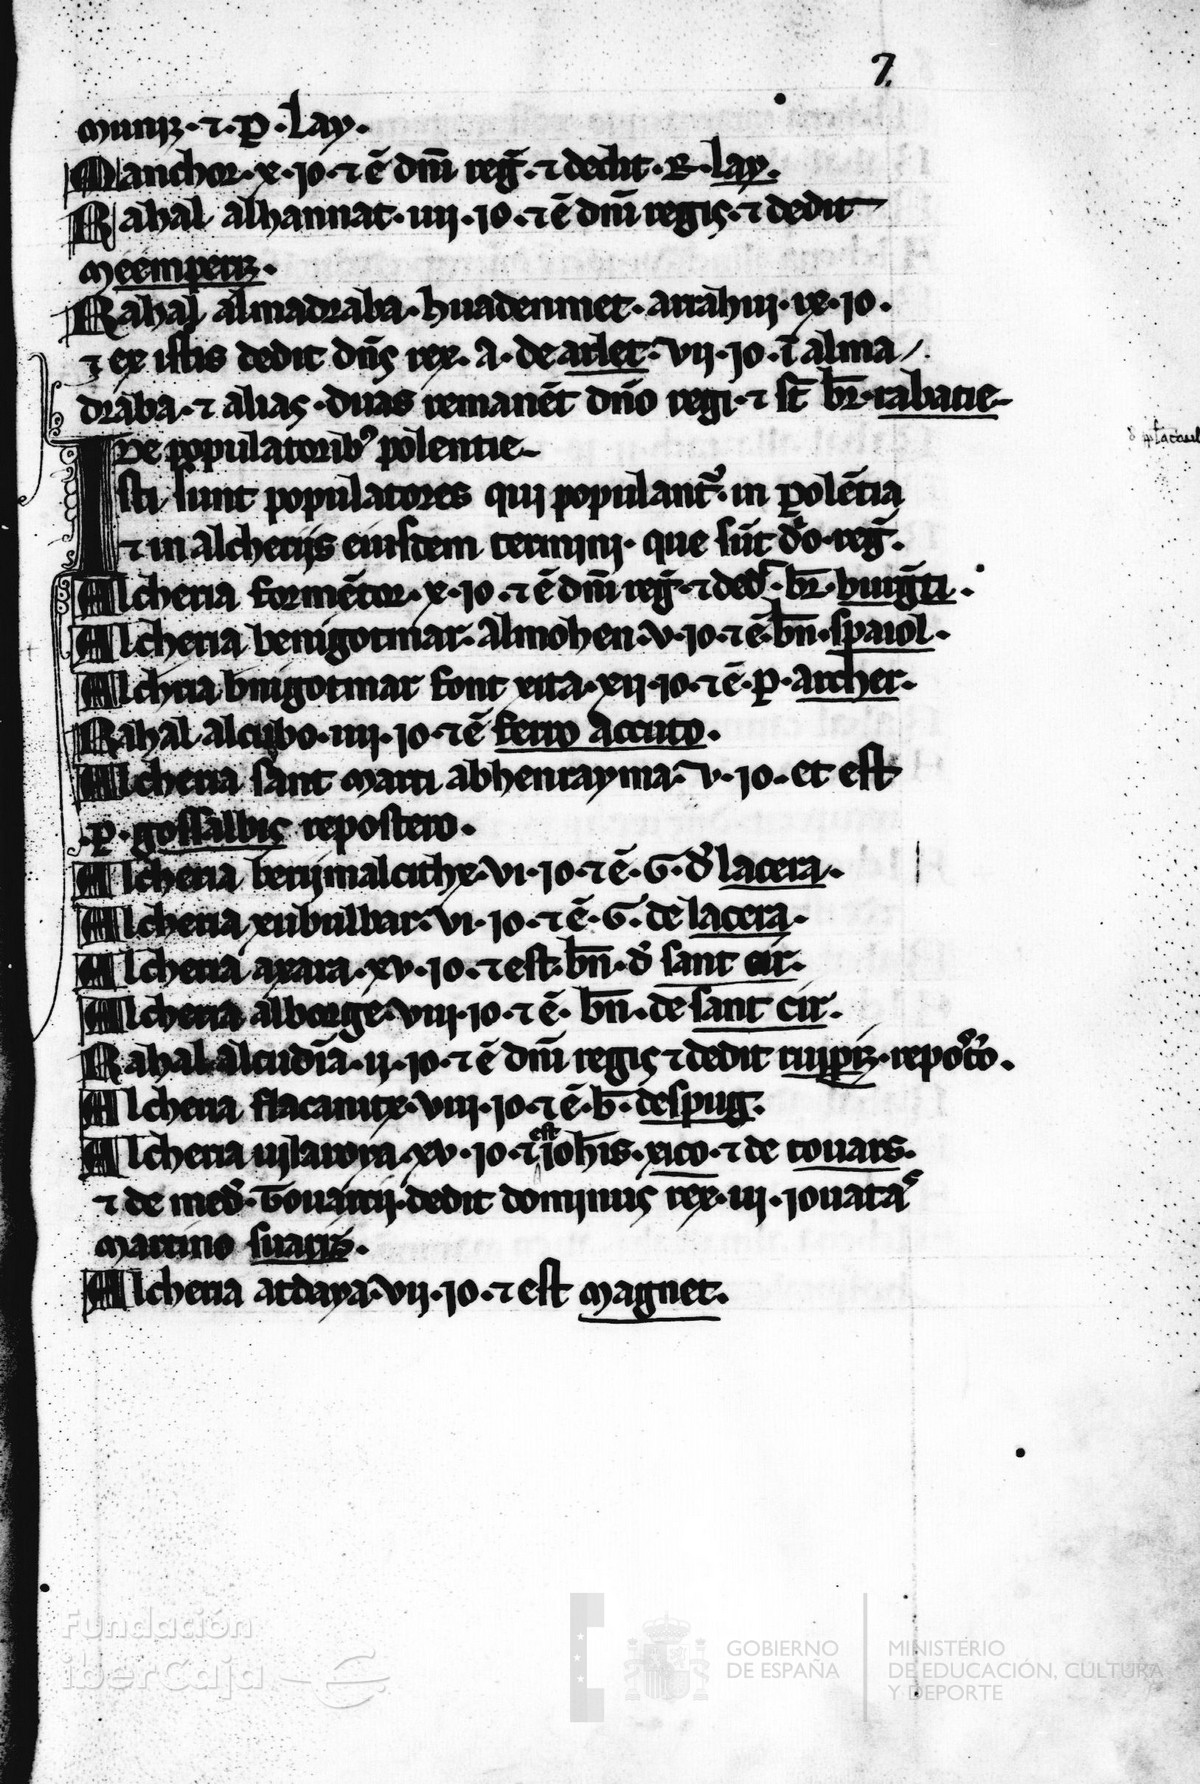 7
muniz · ⁊ · P · lay ·
Manchor · x · io · ⁊ ē dñi reḡ · ⁊ dedit · R · lay ·
Rahal alhannat · iiij · io · ⁊ ē dñi regis · ⁊ dedit
meemperiz ·
Rahal almadraba · huadenmet · arrahuj · ix · io ·
⁊ ex istis dedit dñs rex · A · de arlet · vij · io · ī alma
draba · ⁊ alias · duas remanēt dño regi · ⁊ st̄ br̄ · rabacie
De populatorib⁹ polentie
Isti sunt populatores qui populant᷑ · in Polētia
⁊ in alcherijs eiusdem termini · que sūt do · reḡ ·
Alcheria formētor · x · io · ⁊ ē dñi reḡ · ⁊ ded · br̄ · burḡti ·
Alcheria benigotmar · almohen · v · io · ⁊ ē · bñ · spaiol ·
Alchria bnigotmar font xita · xij · io · ⁊ ē · P · archer ·
Rahal alcubo · iiij · io · ⁊ ē ferro accuto ·
Alcheria sant marti abhenrayma · v · io · et est
· P · gossalbis repostero ·
Alcheria berijmalcithx · vi · io · ⁊ ē · G · d' lacera ·
Alcheria xubulbar · vi · io · ⁊ ē · G · de lacera ·
Alcheria axara · xv · io · ⁊ est · bñ · d' sant cir ·
Alcheria alborge · viij · io · ⁊ ē · bñ · de sant cir ·
Rahal alcudīa · ij · io · ⁊ ē dñi regis ⁊ dedit ruipiz · reposto ·
Alcheria flacanitx · viij · io · ⁊ ē · b̄ · despug ·
Alcheria uilaroya · xv · io · ⁊ est iohis · xico · ⁊ de touars ·
⁊ de med' · Touarcij · dedit dominus rex · iij · iouatas
martino suariz ·
Alcheria atdaya · vij · io · ⁊ est magnet ·
Fundación
iberCaja
GOBIERNO
DE ESPAÑA
MINISTERIO
DE EDUCACIÓN, CULTURA
Y DEPORTE